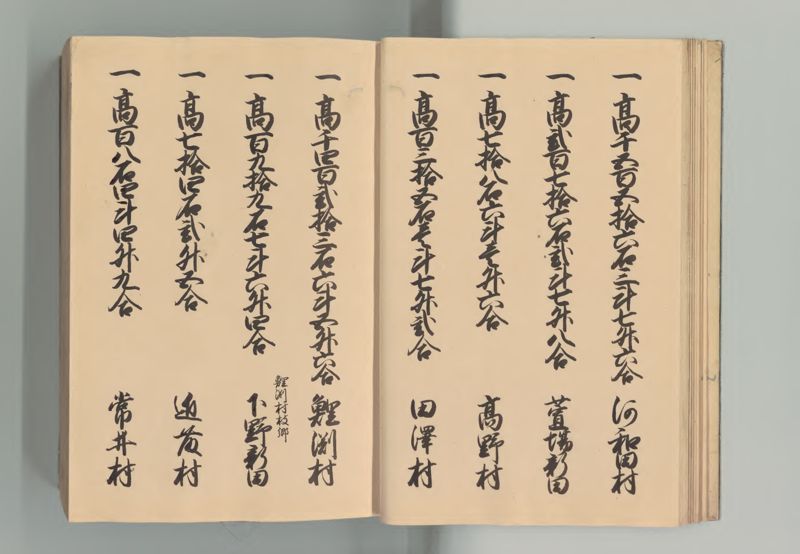 一 高千五百五拾六石三斗七升六合 河和田村
一 高弐百七拾六石弐斗七升八合 萱場新田
一 高七拾八石六斗壱升六合 高野村
一 高百三拾五石壱斗七升弐合 田澤村
一 高千四百弐拾三石六斗五升六合 鯉渕村
鯉渕村枝郷
一 高百九拾九石七斗六升四合 下野新田
一 高七拾四石弐升五合 村
一 高百八石四斗四升九合 常井村